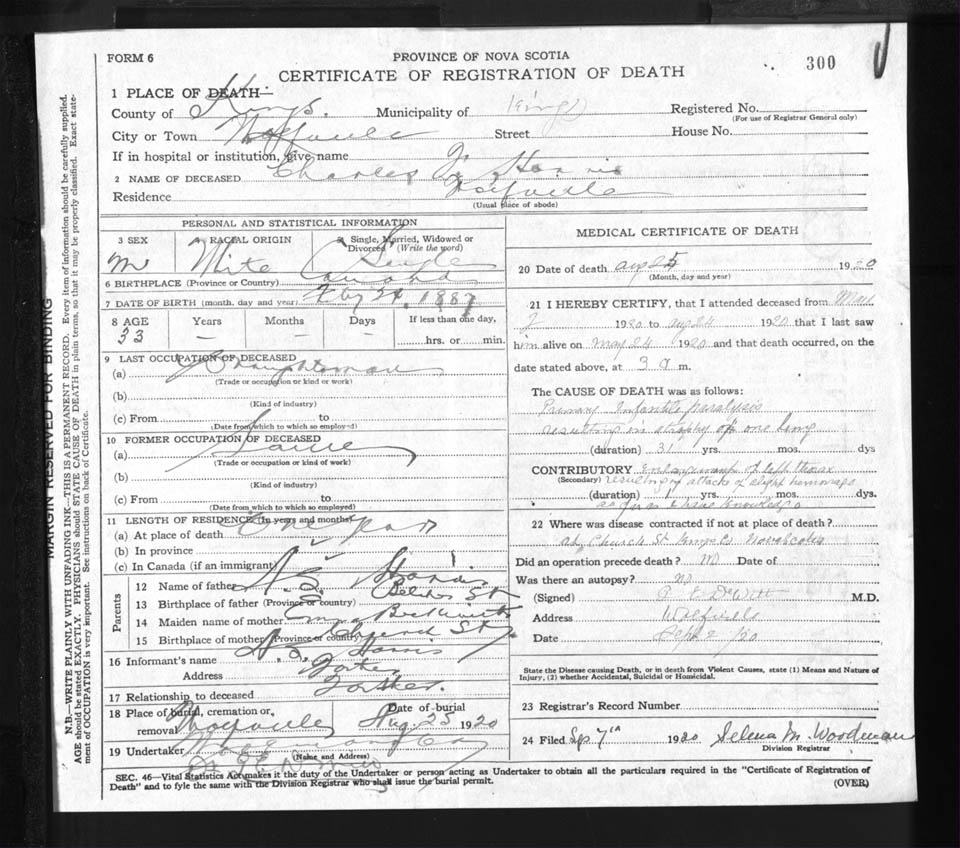 FORM 6
PROVINCE OF NOVA SCOTIA
CERTIFICATE OF REGISTRATION OF DEATH
300
1 PLACE OF DEATH—
County of Kings. Municipality of Kings Registered No.
(For use of Registrar General only)
City or Town Wolfville Street House No.
If in hospital or institution, give name
2 NAME OF DECEASED Charles Harris
Residence Wolfville
(Usual place of abode)
PERSONAL AND STATISTICAL INFORMATION
3 SEX 4 RACIAL ORIGIN 5 Single, Married, Widowed or Divorced (Write the word)
M White Single
6 BIRTHPLACE (Province or Country) Canada
7 DATE OF BIRTH (month, day and year) Feby 24, 1887
8 AGE Years Months Days If less than one day,
33 — — hrs. or min.
9 LAST OCCUPATION OF DECEASED
(a) Draughtsman
(Trade or occupation or kind or work)
(b)
(Kind of industry)
(c) From to
(Date from which to which so employed)
10 FORMER OCCUPATION OF DECEASED
(a) Same
(Trade or occupation or kind of work)
(b)
(Kind of industry)
(c) From to
(Date from which to which so employed)
11 LENGTH OF RESIDENCE (In years and months)
(a) At place of death One year
(b) In province
(c) In Canada (if an immigrant)
Parents
12 Name of father Harris
13 Birthplace of father (Province or country) Belcher St
14 Maiden name of mother Beckwith
15 Birthplace of mother (Province or country) Church St
16 Informant's name Harris
Address
17 Relationship to deceased Father.
18 Place of burial, cremation or removal Wolfville Date of burial Aug. 25 1920
19 Undertaker
(Name and Address)
MEDICAL CERTIFICATE OF DEATH
20 Date of death Aug 25 1920
(Month, day and year)
21 I HEREBY CERTIFY, that I attended deceased from May
1920 to Aug 24 1920 that I last saw
him alive on May 24 1920 and that death occurred, on the
date stated above, at 3 a m.
The CAUSE OF DEATH was as follows:
Primary Infantile paralysis
resulting in atrophy of one lung
(duration) 31 yrs. mos. dys
CONTRIBUTORY Enlargement of left thorax
(Secondary) resulting in attacks of slight hemorrage
(duration) 1 yrs. mos. dys.
as far as I have knowledge
22 Where was disease contracted if not at place of death?
at Church St Kings Co Nova Scotia
Did an operation precede death? No Date of
Was there an autopsy? No
(Signed) DeWitt M.D.
Address Wolfville
Date Sept 2/20
State the Disease causing Death, or in death from Violent Causes, state (1) Means and Nature of
Injury, (2) whether Accidental, Suicidal or Homicidal.
23 Registrar's Record Number
24 Filed Sep 7th 1920 Selena M. Woodman
Division Registrar
SEC. 46—Vital Statistics Act makes it the duty of the Undertaker or person acting as Undertaker to obtain all the particulars required in the "Certificate of Registration of
Death" and to fyle the same with the Division Registrar who shall issue the burial permit.
(OVER)
MARGIN RESERVED FOR BINDING
N.B.—WRITE PLAINLY WITH UNFADING INK—THIS IS A PERMANENT RECORD. Every item of information should be carefully supplied.
AGE should be stated EXACTLY. PHYSICIANS should STATE CAUSE OF DEATH in plain terms, so that it may be properly classified. Exact state-
ment of OCCUPATION is very important. See instructions on back of Certificate.